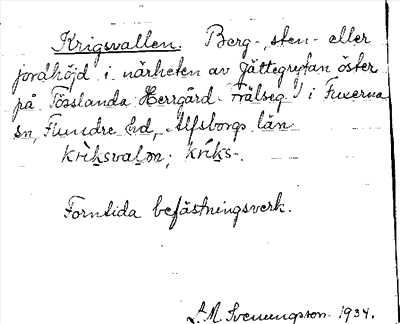 Krigsvallen. Berg-, sten- eller
jordhöjd i närheten av Jättegrytan öster
på Tösslanda Herrgård - Frälseg. i Fuxerna
sn, Flundre hd, Älfsborgs län
krìksvalən; kriks-.
Forntida befästningsverk.
L. M. Svenungsson 1934.